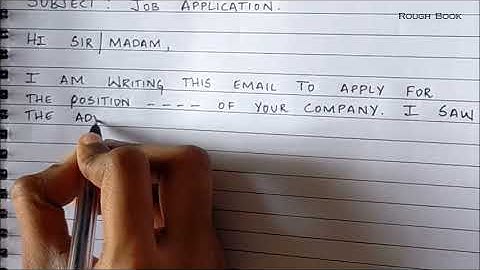 SUBJECT: JOB APPLICATION.
Rough Book
HI SIR/MADAM,
I AM WRITING THIS EMAIL TO APPLY FOR
THE POSITION ---- OF YOUR COMPANY. I SAW
THE AD